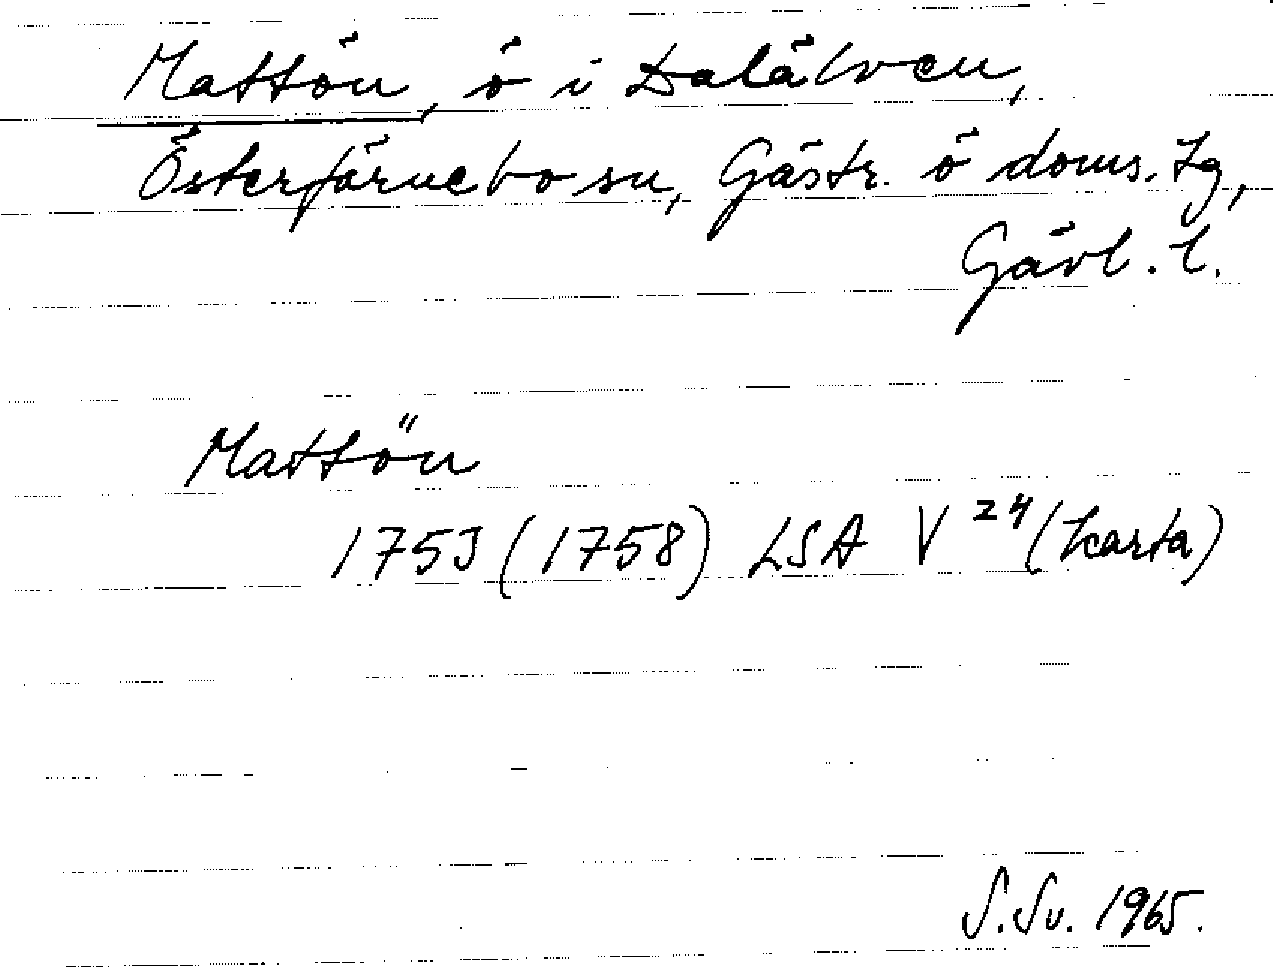 Mattön, ö i Dalälven,
Österfärnebo sn, Gästr. ö doms.tg,
Gävl. l.
Mattön
1753 (1758) LSA V 24 (karta)
S.Sv. 1965.